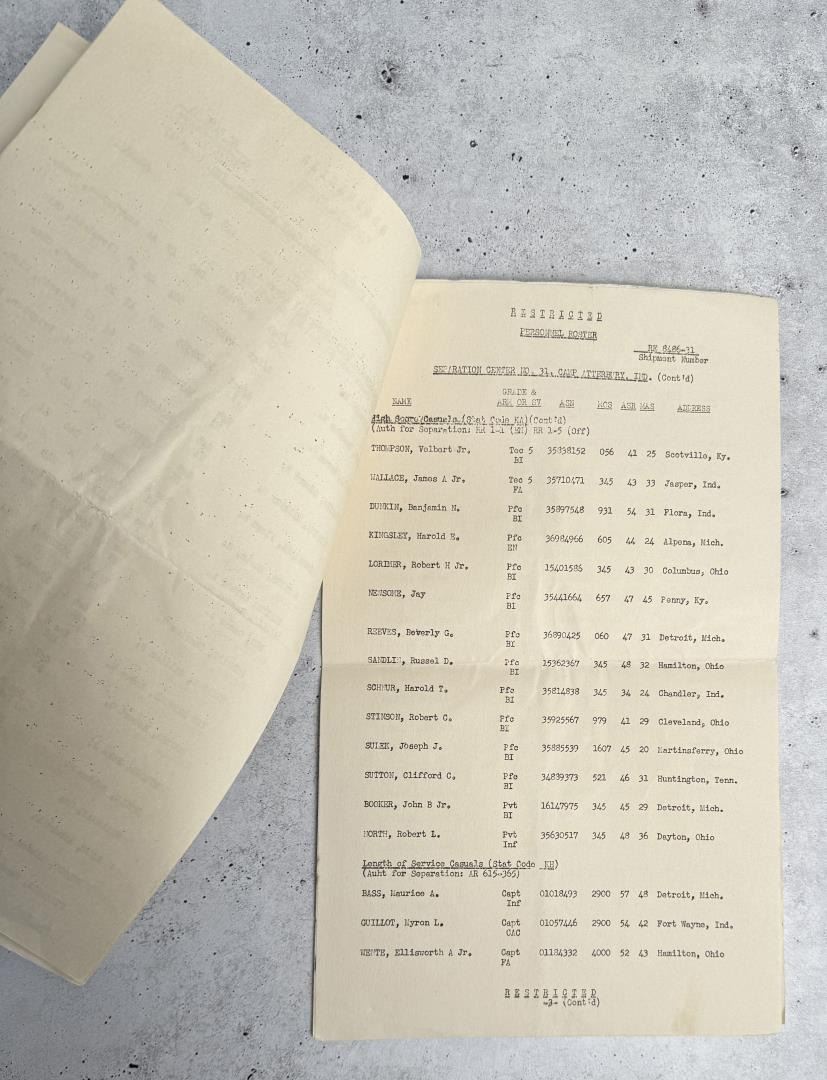 RESTRICTED
PERSONNEL ROSTER
RE 8486-31
Shipment Number
SEPARATION CENTER NO. 31, CAMP ATTERBURY, IND. (Cont'd)
GRADE &
NAME ARM OR SV ASN MCS ASR MAS ADDRESS
High Score Casuals (Stat Code KA)(Cont'd)
(Auth for Separation: RR 1-1 (EM) RR 1-5 (Off)
THOMPSON, Velbert Jr. Tec 5 35838152 056 41 25 Scotville, Ky.
BI
WALLACE, James A Jr. Tec 5 35710471 345 43 33 Jasper, Ind.
FA
DUNKIN, Benjamin N. Pfc 35897548 931 54 31 Flora, Ind.
BI
KINGSLEY, Harold E. Pfc 36984966 605 44 24 Alpena, Mich.
EN
LORIMER, Robert H Jr. Pfc 15401586 345 43 30 Columbus, Ohio
BI
NEWSOME, Jay Pfc 35441664 657 47 45 Penny, Ky.
BI
REEVES, Beverly G. Pfc 36890425 060 47 31 Detroit, Mich.
BI
SANDLIN, Russel D. Pfc 15362367 345 48 32 Hamilton, Ohio
BI
SCHNUR, Harold T. Pfc 35814838 345 34 24 Chandler, Ind.
BI
STIMSON, Robert C. Pfc 35925567 979 41 29 Cleveland, Ohio
BI
SULEK, Joseph J. Pfc 35885539 1607 45 20 Martinsferry, Ohio
BI
SUTTON, Clifford C. Pfc 34839373 521 46 31 Huntington, Tenn.
BI
BOOKER, John B Jr. Pvt 16147975 345 45 29 Detroit, Mich.
BI
NORTH, Robert L. Pvt 35630517 345 48 36 Dayton, Ohio
Inf
Length of Service Casuals (Stat Code KH)
(Auht for Separation: AR 615-365)
BASS, Maurice A. Capt 01018493 2900 57 48 Detroit, Mich.
Inf
GUILLOT, Myron L. Capt 01057446 2900 54 42 Fort Wayne, Ind.
CAC
WENTE, Ellisworth A Jr. Capt 01184332 4000 52 43 Hamilton, Ohio
FA
RESTRICTED
(Cont'd)